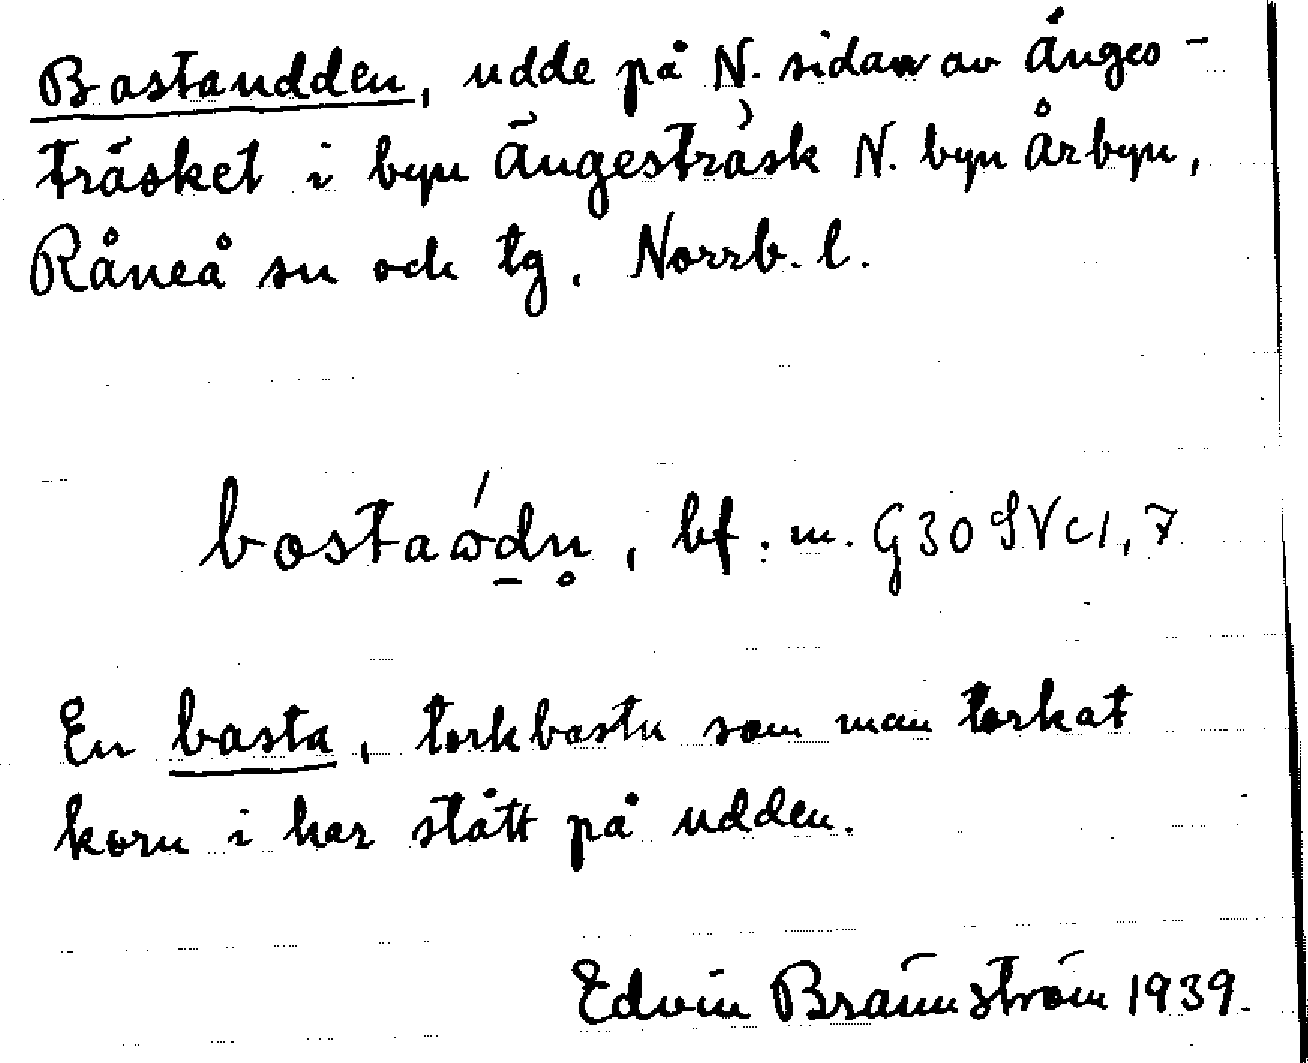 Bastaudden, udde på N. sidan av Änges-
träsket i byn Ängesträsk N. byn Årbyn,
Råneå sn och tg. Norrb. l.
bostaώdn̥, bf. m. G30SVc1,7
En basta, torkbastu som man torkat
korn i har stått på udden.
Edvin Brännström 1939.